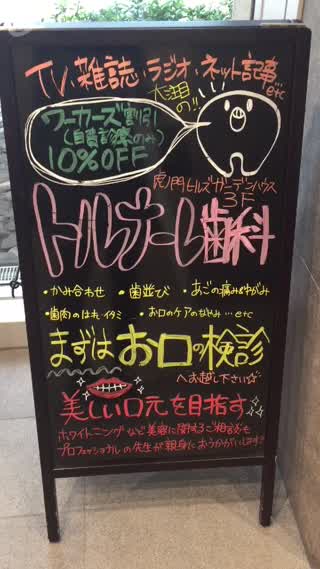 TV・雑誌・ラジオ・ネット記事…etc
大注目の!!
ワーカーズ割引
(自費診療のみ)
10%OFF
虎ノ門ヒルズガーデンハウス
3F
トルナーレ歯科
・かみ合わせ ・歯並び ・あごの痛み&ゆがみ
・歯肉のはれ・イタミ ・お口のケアのなやみ…etc
まずはお口の検診
へお越し下さい☆
美しい口元を目指す
ホワイトニングなど美容に関するご相談も
プロフェッショナルの先生が親身におうかがいします!!